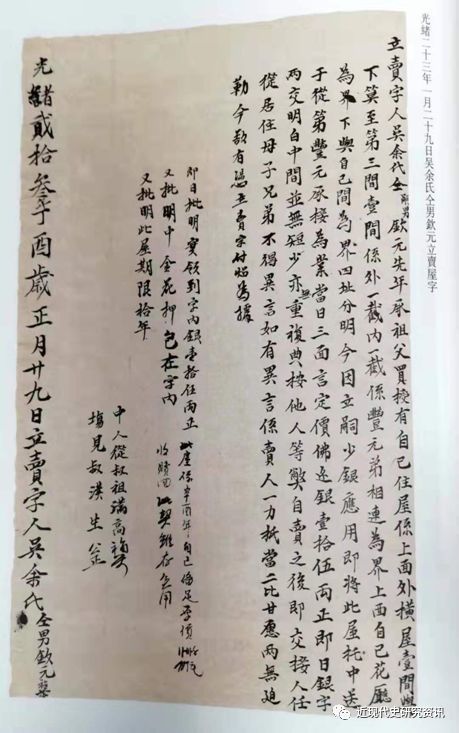 光緒二十三年一月二十九日吴余氏仝男欽元立賣屋字
立賣字人吳余氏仝男欽元先年承祖父買授有自己住屋係上面外橫屋壹間與
下莫至第三間壹間係外一截內一截係豐元弟相連為界上面自己花廳
為界下與自己間為界四址分明今因立嗣少銀應用即將此屋托中送
于從弟豐元承接為業當日三面言定價佛邊銀壹拾伍兩正即日銀字
兩交明白中間並無短少亦無重複典按他人等獘自賣之後即交接人任
從居住母子兄弟不得異言如有異言係賣人一力抵當二比甘愿兩無迫
勒今欲有憑立賣字付炤為據
即日批明實領到字內銀壹拾伍兩正
又批明中金花押包在字內
又批明此屋期限拾年
此屋係辛酉年自己備足字價
收贖回此契雖存無用
中人從叔祖滿高
塢見叔漢生
光緒貳拾叁年酉歲正月廿九日立賣字人吳余氏仝男欽元
近现代史研究资讯